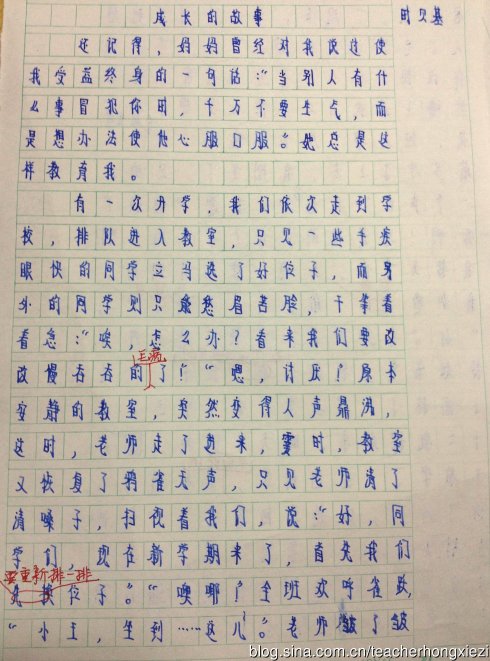 成长的故事 时贝基
还记得，妈妈曾经对我说过使
我受益终身的一句话：“当别人有什
么事冒犯你时，千万不要生气，而
是想办法使他心服口服。”她总是这
样教育我。
有一次开学，我们依次走到学
校，排队进入教室，只见一些手疾
眼快的同学立马选了好位子，而另
外的同学则只能愁眉苦脸，干拿着
着急：“唉，怎么办？看来我们要改
毛病
改慢吞吞的了！”“嗯，讨厌！原本
安静的教室，突然变得人声鼎沸，
这时，老师走了进来，霎时，教室
又恢复了鸦雀无声，只见老师清了
清嗓子，扫视着我们，说：“好，同
学们，现在新学期来了，首先我们
要重新排一排
换位子。”“噢哪！全班欢呼雀跃，
“小王，坐到……这儿。”老师皱了皱
blog.sina.com.cn/teacherhongxiezi